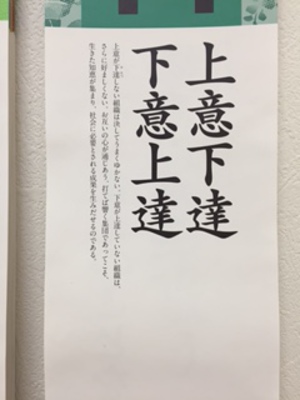 上意下達
下意上達
上意が下達しない組織は決してうまくゆかない、下意が上達していない組織は、
さらに好ましくない。お互いの心が通じあう、打てば響く集団であってこそ、
生きた知恵が集まり、社会に必要とされる成果を生みだせるのである。